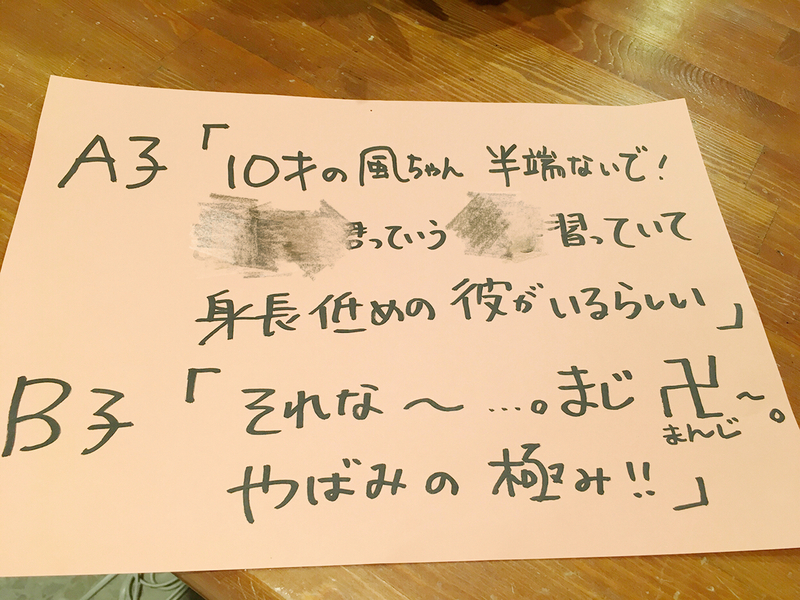 A子「10才の風ちゃん 半端ないで!
っていう 習っていて
身長低めの彼がいるらしい」
B子「それな〜…。まじ卍〜。
まんじ
やばみの極み!!」